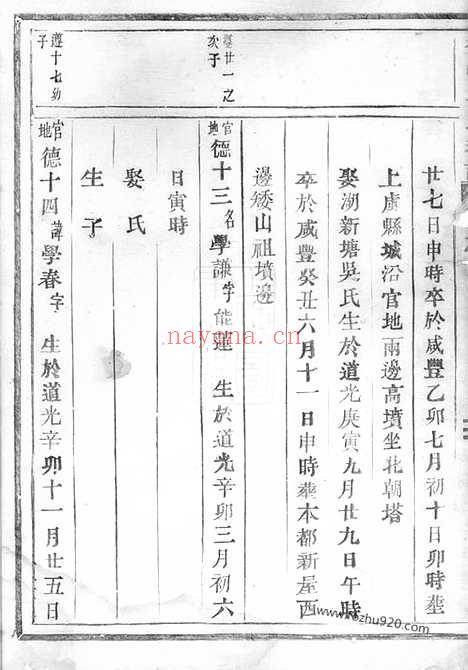 廿七日申時卒於咸豐乙卯七月初十日卯時塟
上虞縣城沿官地兩邊高墳坐北朝塔
娶湖新塘吳氏生於道光庚寅九月廿九日午時
卒於咸豐癸丑六月十一日申時塟本都新屋西
邊矮山祖墳邊
遵廿一之次子
官地德十三名學謙字能蓮 生於道光辛卯三月初六
日寅時
娶氏
生子
遵十七幼子
官地德十四諱學春字 生於道光辛卯十一月廿五日
nayona.cn
www.rozhu979.com